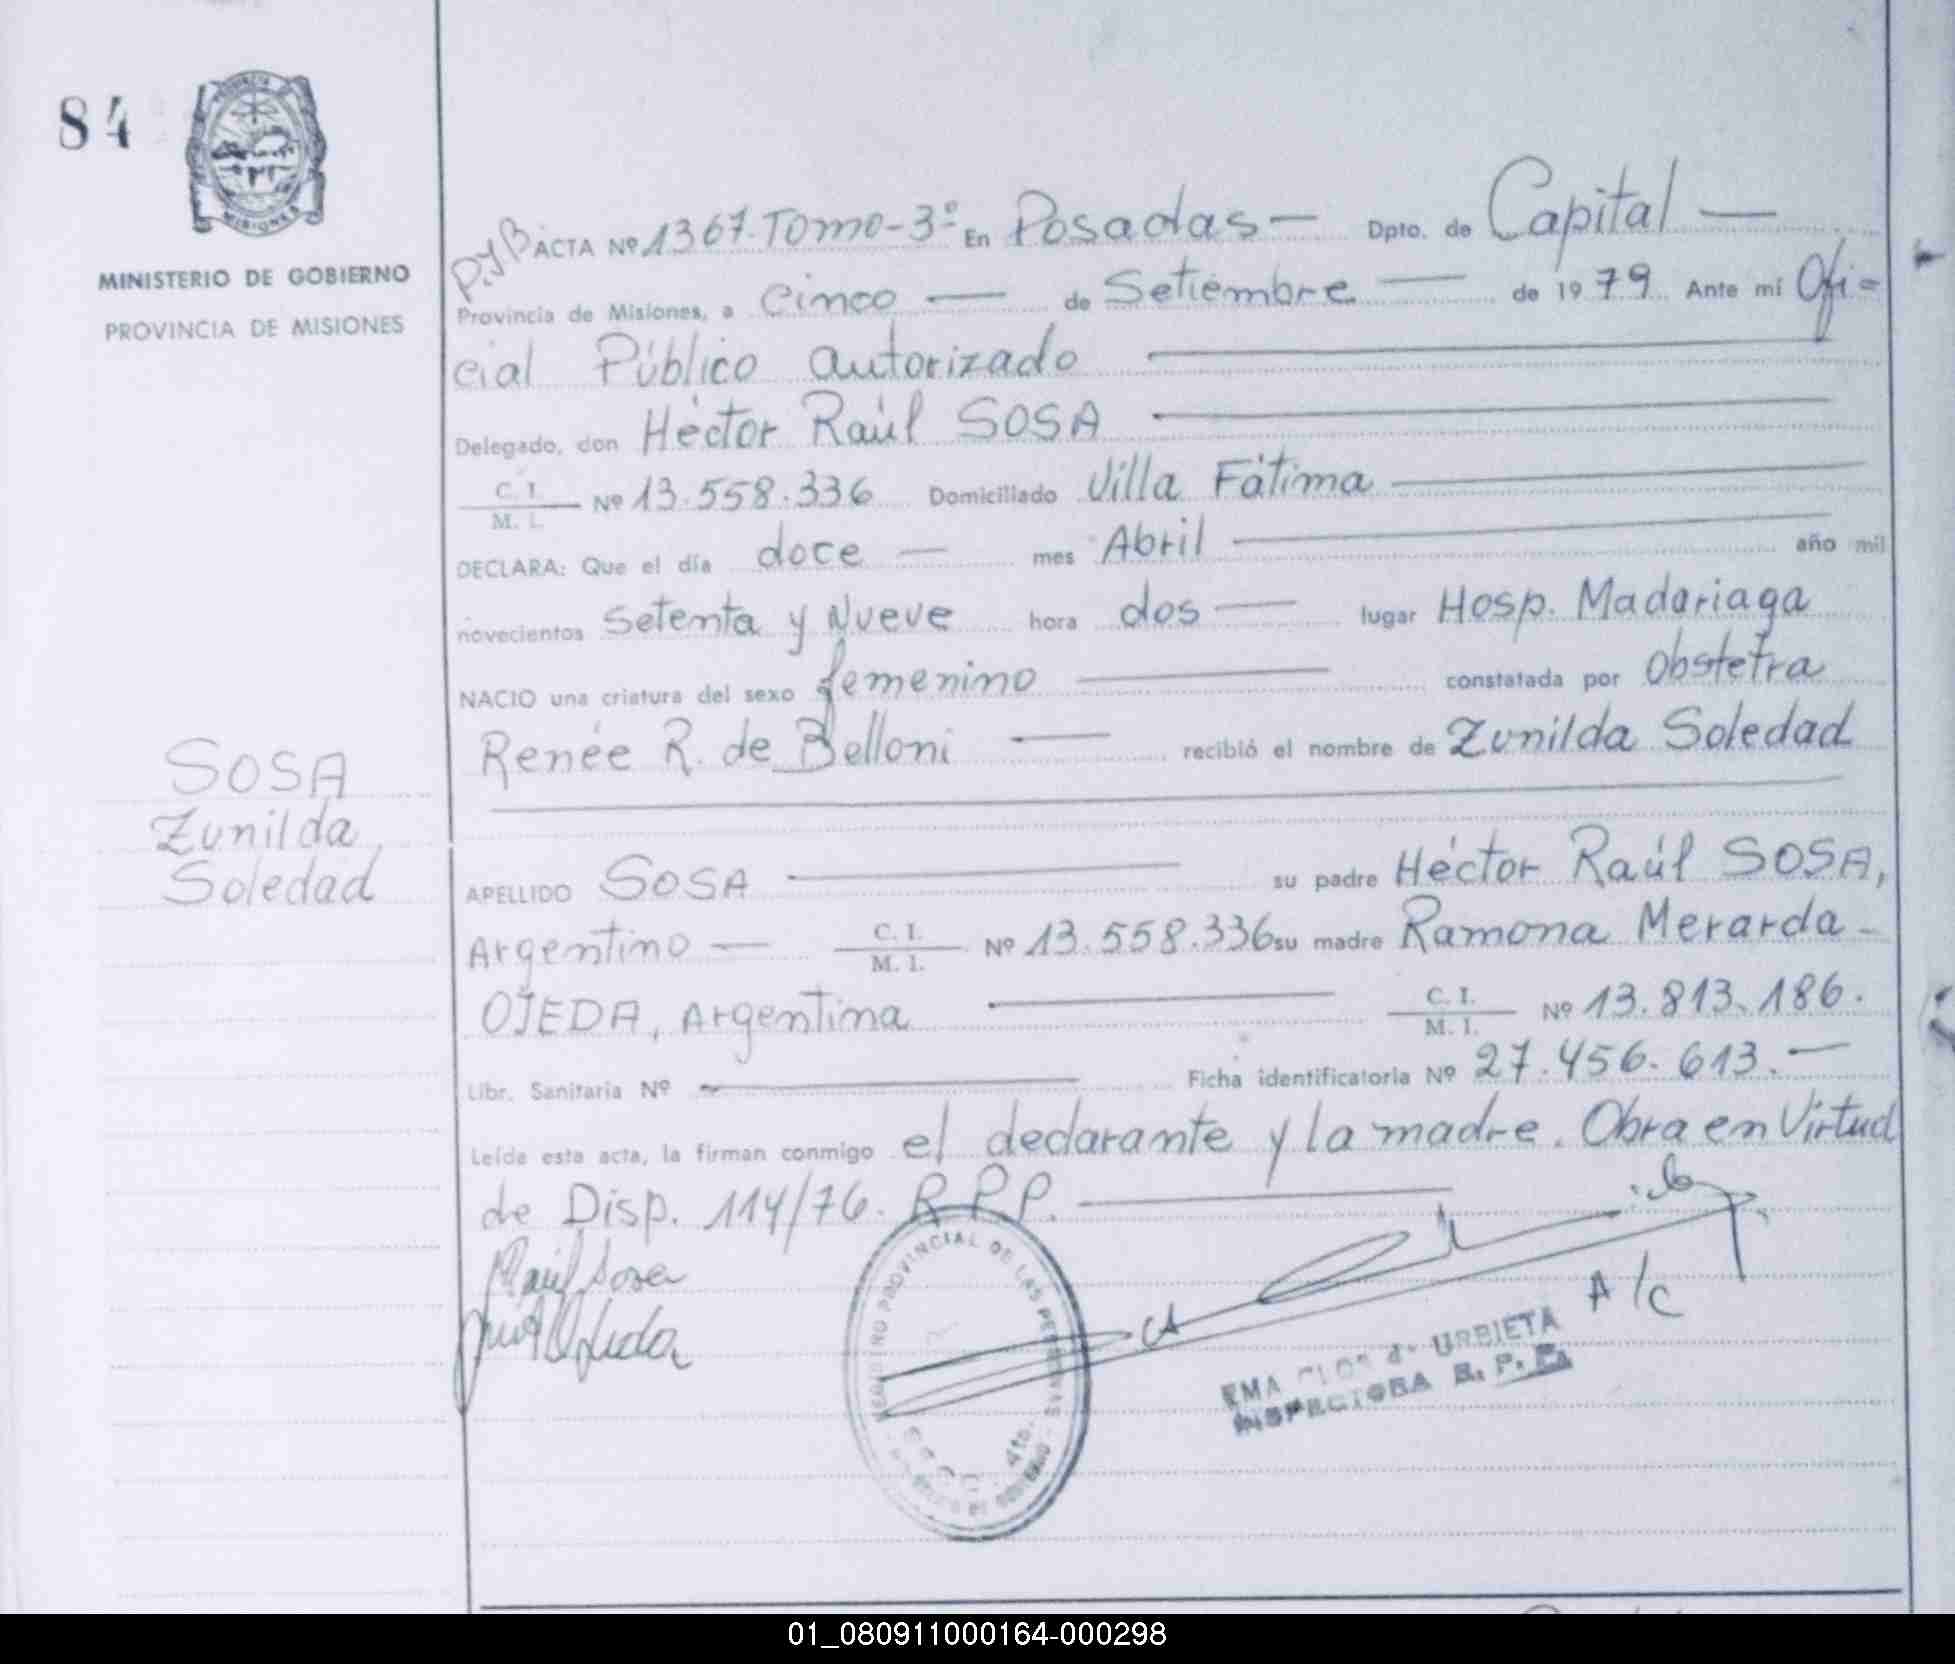 84
PROVINCIA
MISIONES
MINISTERIO DE GOBIERNO
PROVINCIA DE MISIONES
SOSA
Zunilda
Soledad
P.yB ACTA Nº 1367. Tomo-3º En Posadas — Dpto. de Capital —
Provincia de Misiones, a cinco — de Setiembre — de 1979 Ante mi Ofi=
cial Público autorizado
Delegado, don Héctor Raúl SOSA
C. I. / M. I. Nº 13.558.336 Domiciliado Villa Fátima
DECLARA: Que el día doce — mes Abril — año mil
novecientos setenta y Nueve hora dos — lugar Hosp. Madariaga
NACIO una criatura del sexo femenino — constatada por Obstetra
Renée R. de Belloni — recibió el nombre de Zunilda Soledad
APELLIDO SOSA — su padre Héctor Raúl SOSA,
Argentino — C. I. / M. I. Nº 13.558.336 su madre Ramona Merarda -
OJEDA, Argentina — C. I. / M. I. Nº 13.813.186.
Libr. Sanitaria Nº — Ficha identificatoria Nº 27.456.613. —
Leída esta acta, la firman conmigo el declarante y la madre. Obra en Virtud
de Disp. 114/76. R.P.P.
Raúl Sosa
REGISTRO PROVINCIAL DE LAS PERSONAS
A/C
URBIETA
INSPECTORA R. P. P.
01_080911000164-000298